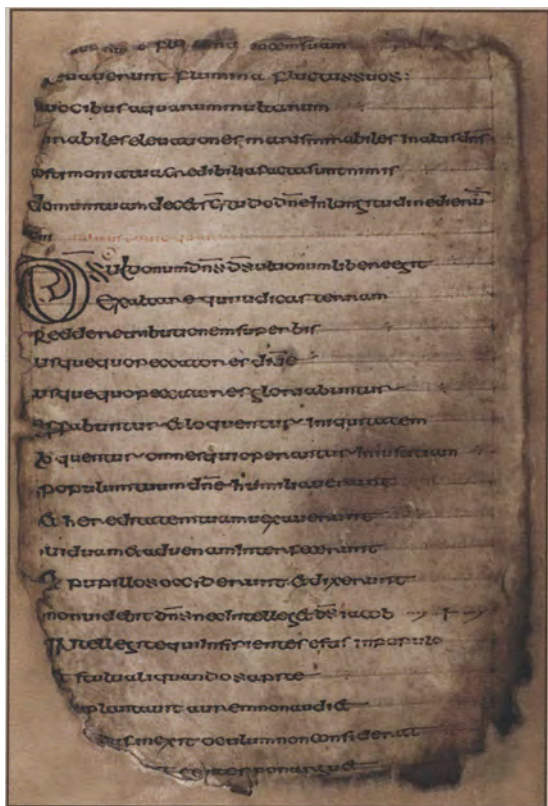 uocem suam
uauerunt flumina fluctus suos:
uocibus aquarum multarum
mirabiles eleuationes maris mirabiles in altis dn̄s
testimonia tua credibilia facta sunt nimis
domum tuam dec& sc̄itudo dn̄e in longitudine dierū
D̄s ultionum dn̄s d̄s ultionum libere egit
Exaltare qui iudicas terram
Redde retributionem superbis
usquequo peccatores dn̄e
usquequo peccatores gloriabuntur
Effabuntur & loquentur iniquitatem
loquentur omnes qui operantur iniustitiam
populum tuum dn̄e humiliauerunt
& hereditatem tuam uexauerunt
uiduam & aduenam interfecerunt
& pupillos occiderunt & dixerunt
non uidebit dn̄s nec intelleg& d̄s iacob
Intellegite qui insipientes estis in populo
& stulti aliquando sapite
plantauit aurem non audi&
finxit oculum non considerat
gentes non argu&